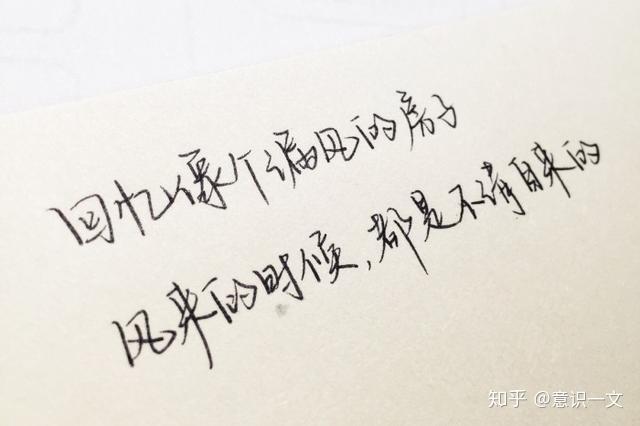 回忆像个漏风的房子
风来的时候，都是不请自来的
知乎 @意识一文